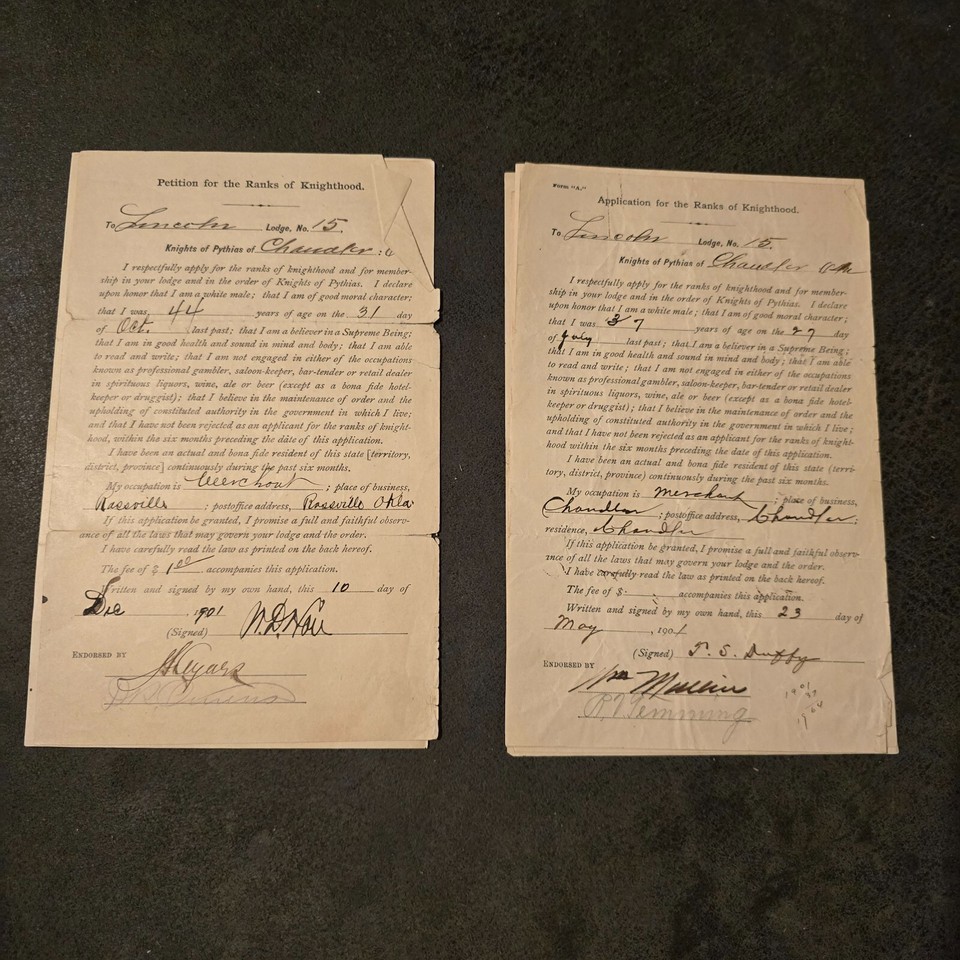 Petition for the Ranks of Knighthood.
To Lincoln Lodge, No. 15.
Knights of Pythias of Chandler
I respectfully apply for the ranks of knighthood and for member-
ship in your lodge and in the order of Knights of Pythias. I declare
upon honor that I am a white male; that I am of good moral character;
that I was 44 years of age on the 31 day
of Oct. last past; that I am a believer in a Supreme Being;
that I am in good health and sound in mind and body; that I am able
to read and write; that I am not engaged in either of the occupations
known as professional gambler, saloon-keeper, bar-tender or retail dealer
in spirituous liquors, wine, ale or beer (except as a bona fide hotel-
keeper or druggist); that I believe in the maintenance of order and the
upholding of constituted authority in the government in which I live;
and that I have not been rejected as an applicant for the ranks of knight-
hood, within the six months preceding the date of this application.
I have been an actual and bona fide resident of this state [territory,
district, province] continuously during the past six months.
My occupation is Merchant ; place of business,
Rossville ; postoffice address, Rossville Okla
If this application be granted, I promise a full and faithful observ-
ance of all the laws that may govern your lodge and the order.
I have carefully read the law as printed on the back hereof.
The fee of $ 1.00 accompanies this application.
Written and signed by my own hand, this 10 day of
Dec , 1901
(Signed)
Endorsed by
Form "A."
Application for the Ranks of Knighthood.
To Lincoln Lodge, No. 15.
Knights of Pythias of Chandler
I respectfully apply for the ranks of knighthood and for member-
ship in your lodge and in the order of Knights of Pythias. I declare
upon honor that I am a white male; that I am of good moral character;
that I was 37 years of age on the 27 day
of July last past; that I am a believer in a Supreme Being;
that I am in good health and sound in mind and body; that I am able
to read and write; that I am not engaged in either of the occupations
known as professional gambler, saloon-keeper, bar-tender or retail dealer
in spirituous liquors, wine, ale or beer (except as a bona fide hotel-
keeper or druggist); that I believe in the maintenance of order and the
upholding of constituted authority in the government in which I live;
and that I have not been rejected as an applicant for the ranks of knight-
hood within the six months preceding the date of this application.
I have been an actual and bona fide resident of this state (terri-
tory, district, province) continuously during the past six months.
My occupation is merchant ; place of business,
Chandler ; postoffice address, Chandler;
residence, Chandler
If this application be granted, I promise a full and faithful observ-
ance of all the laws that may govern your lodge and the order.
I have carefully read the law as printed on the back hereof.
The fee of $ accompanies this application.
Written and signed by my own hand, this 23 day of
May , 1901
(Signed) T. S. Duffy
Endorsed by
Wm Mullin